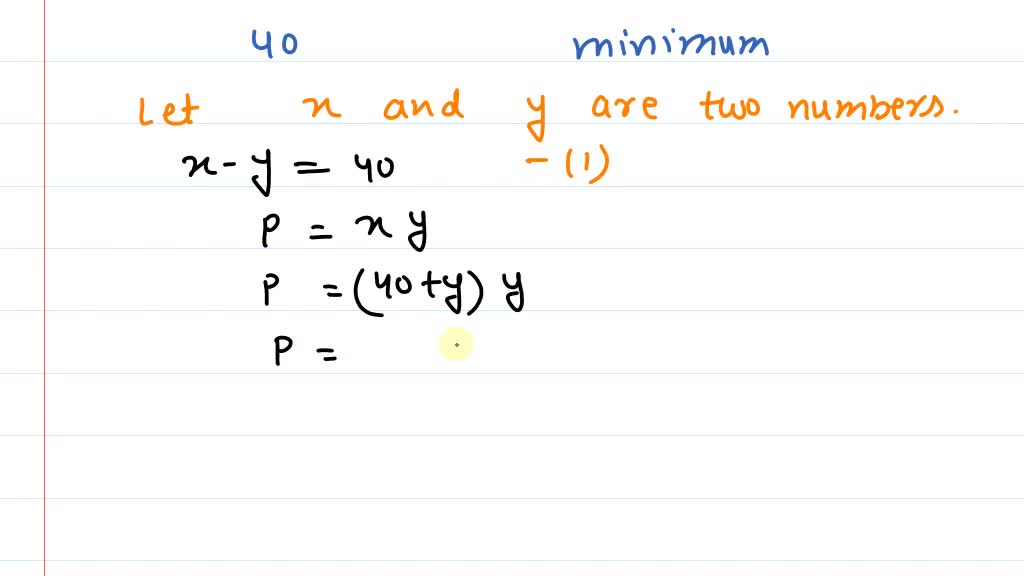 40 minimum
Let x and y are two numbers.
x - y = 40 - (1)
P = x y
P = (40 + y) y
P =